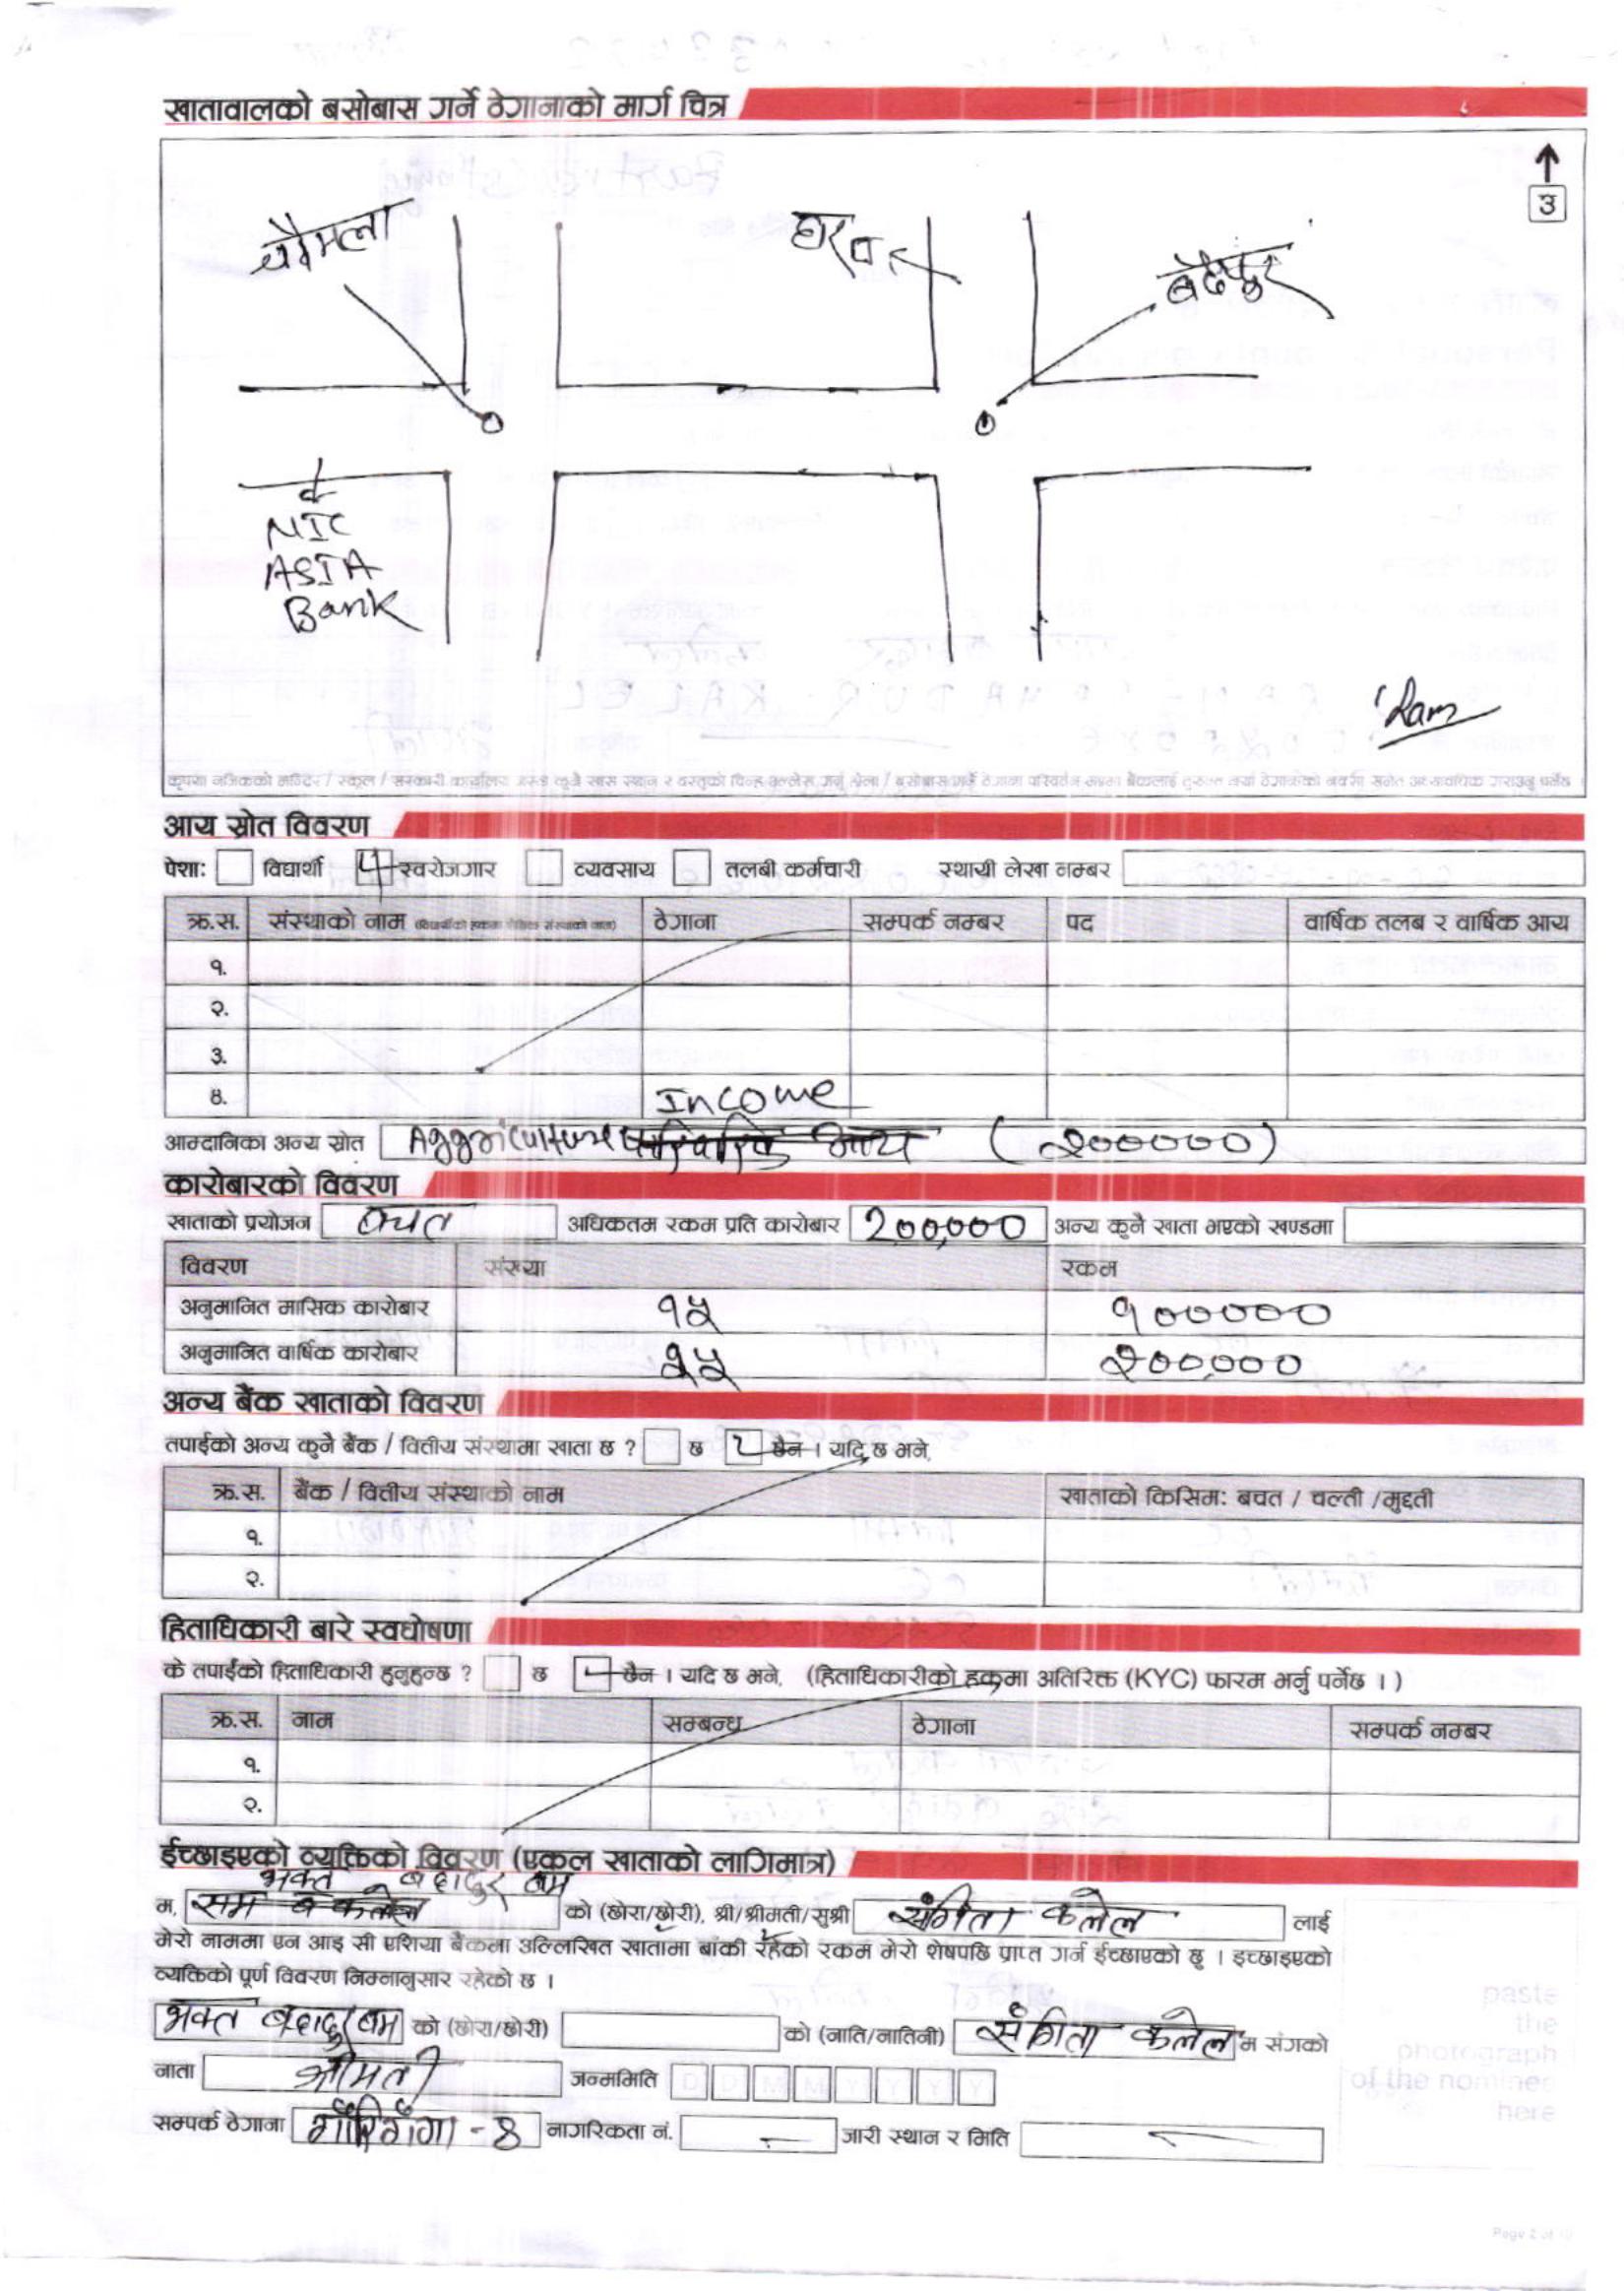 खातावालको बसोबास गर्ने ठेगानाको मार्ग चित्र
उ
चौमला
घर
NIC
ASIA
Bank
Ram
कृपया नजिकको मन्दिर / स्कूल / सरकारी कार्यालय
आय स्रोत विवरण
पेशा: विद्यार्थी स्वरोजगार व्यवसाय तलबी कर्मचारी स्थायी लेखा नम्बर
क्र.स. संस्थाको नाम ठेगाना सम्पर्क नम्बर पद वार्षिक तलब र वार्षिक आय
१.
२.
३.
४.
Income
आम्दानिका अन्य स्रोत Aggriculture (२०००००)
कारोबारको विवरण
खाताको प्रयोजन बचत अधिकतम रकम प्रति कारोबार 200,000 अन्य कुनै खाता भएको खण्डमा
विवरण संख्या रकम
अनुमानित मासिक कारोबार १५ १०००००
अनुमानित वार्षिक कारोबार २५ २००,०००
अन्य बैंक खाताको विवरण
तपाईको अन्य कुनै बैंक / वित्तीय संस्थामा खाता छ ? छ छैन । यदि छ भने,
क्र.स. बैंक / वित्तीय संस्थाको नाम खाताको किसिम: बचत / चल्ती /मुद्दती
१.
२.
हिताधिकारी बारे स्वघोषणा
के तपाईंको हिताधिकारी हुनुहुन्छ ? छ छैन । यदि छ भने, (हिताधिकारीको हकमा अतिरिक्त (KYC) फारम भर्नु पर्नेछ । )
क्र.स. नाम सम्बन्ध ठेगाना सम्पर्क नम्बर
१.
२.
ईच्छाइएको व्यक्तिको विवरण (एकल खाताको लागिमात्र)
भक्त बहादुर बम
म, को (छोरा/छोरी), श्री/श्रीमती/सुश्री संगिता कलेल लाई
मेरो नाममा एन आइ सी एशिया बैंकमा उल्लिखित खातामा बांकी रहेको रकम मेरो शेषपछि प्राप्त गर्न ईच्छाएको छु । इच्छाइएको
व्यक्तिको पूर्ण विवरण निम्नानुसार रहेको छ ।
भक्त बहादुर बम को (छोरा/छोरी) को (नाति/नातिनी) संगिता कलेल म संगको
नाता श्रीमती जन्ममिति D D M M Y Y Y Y
सम्पर्क ठेगाना गौरीगंगा - ४ नागरिकता नं. - जारी स्थान र मिति -
paste
the
photograph
of the nominee
here